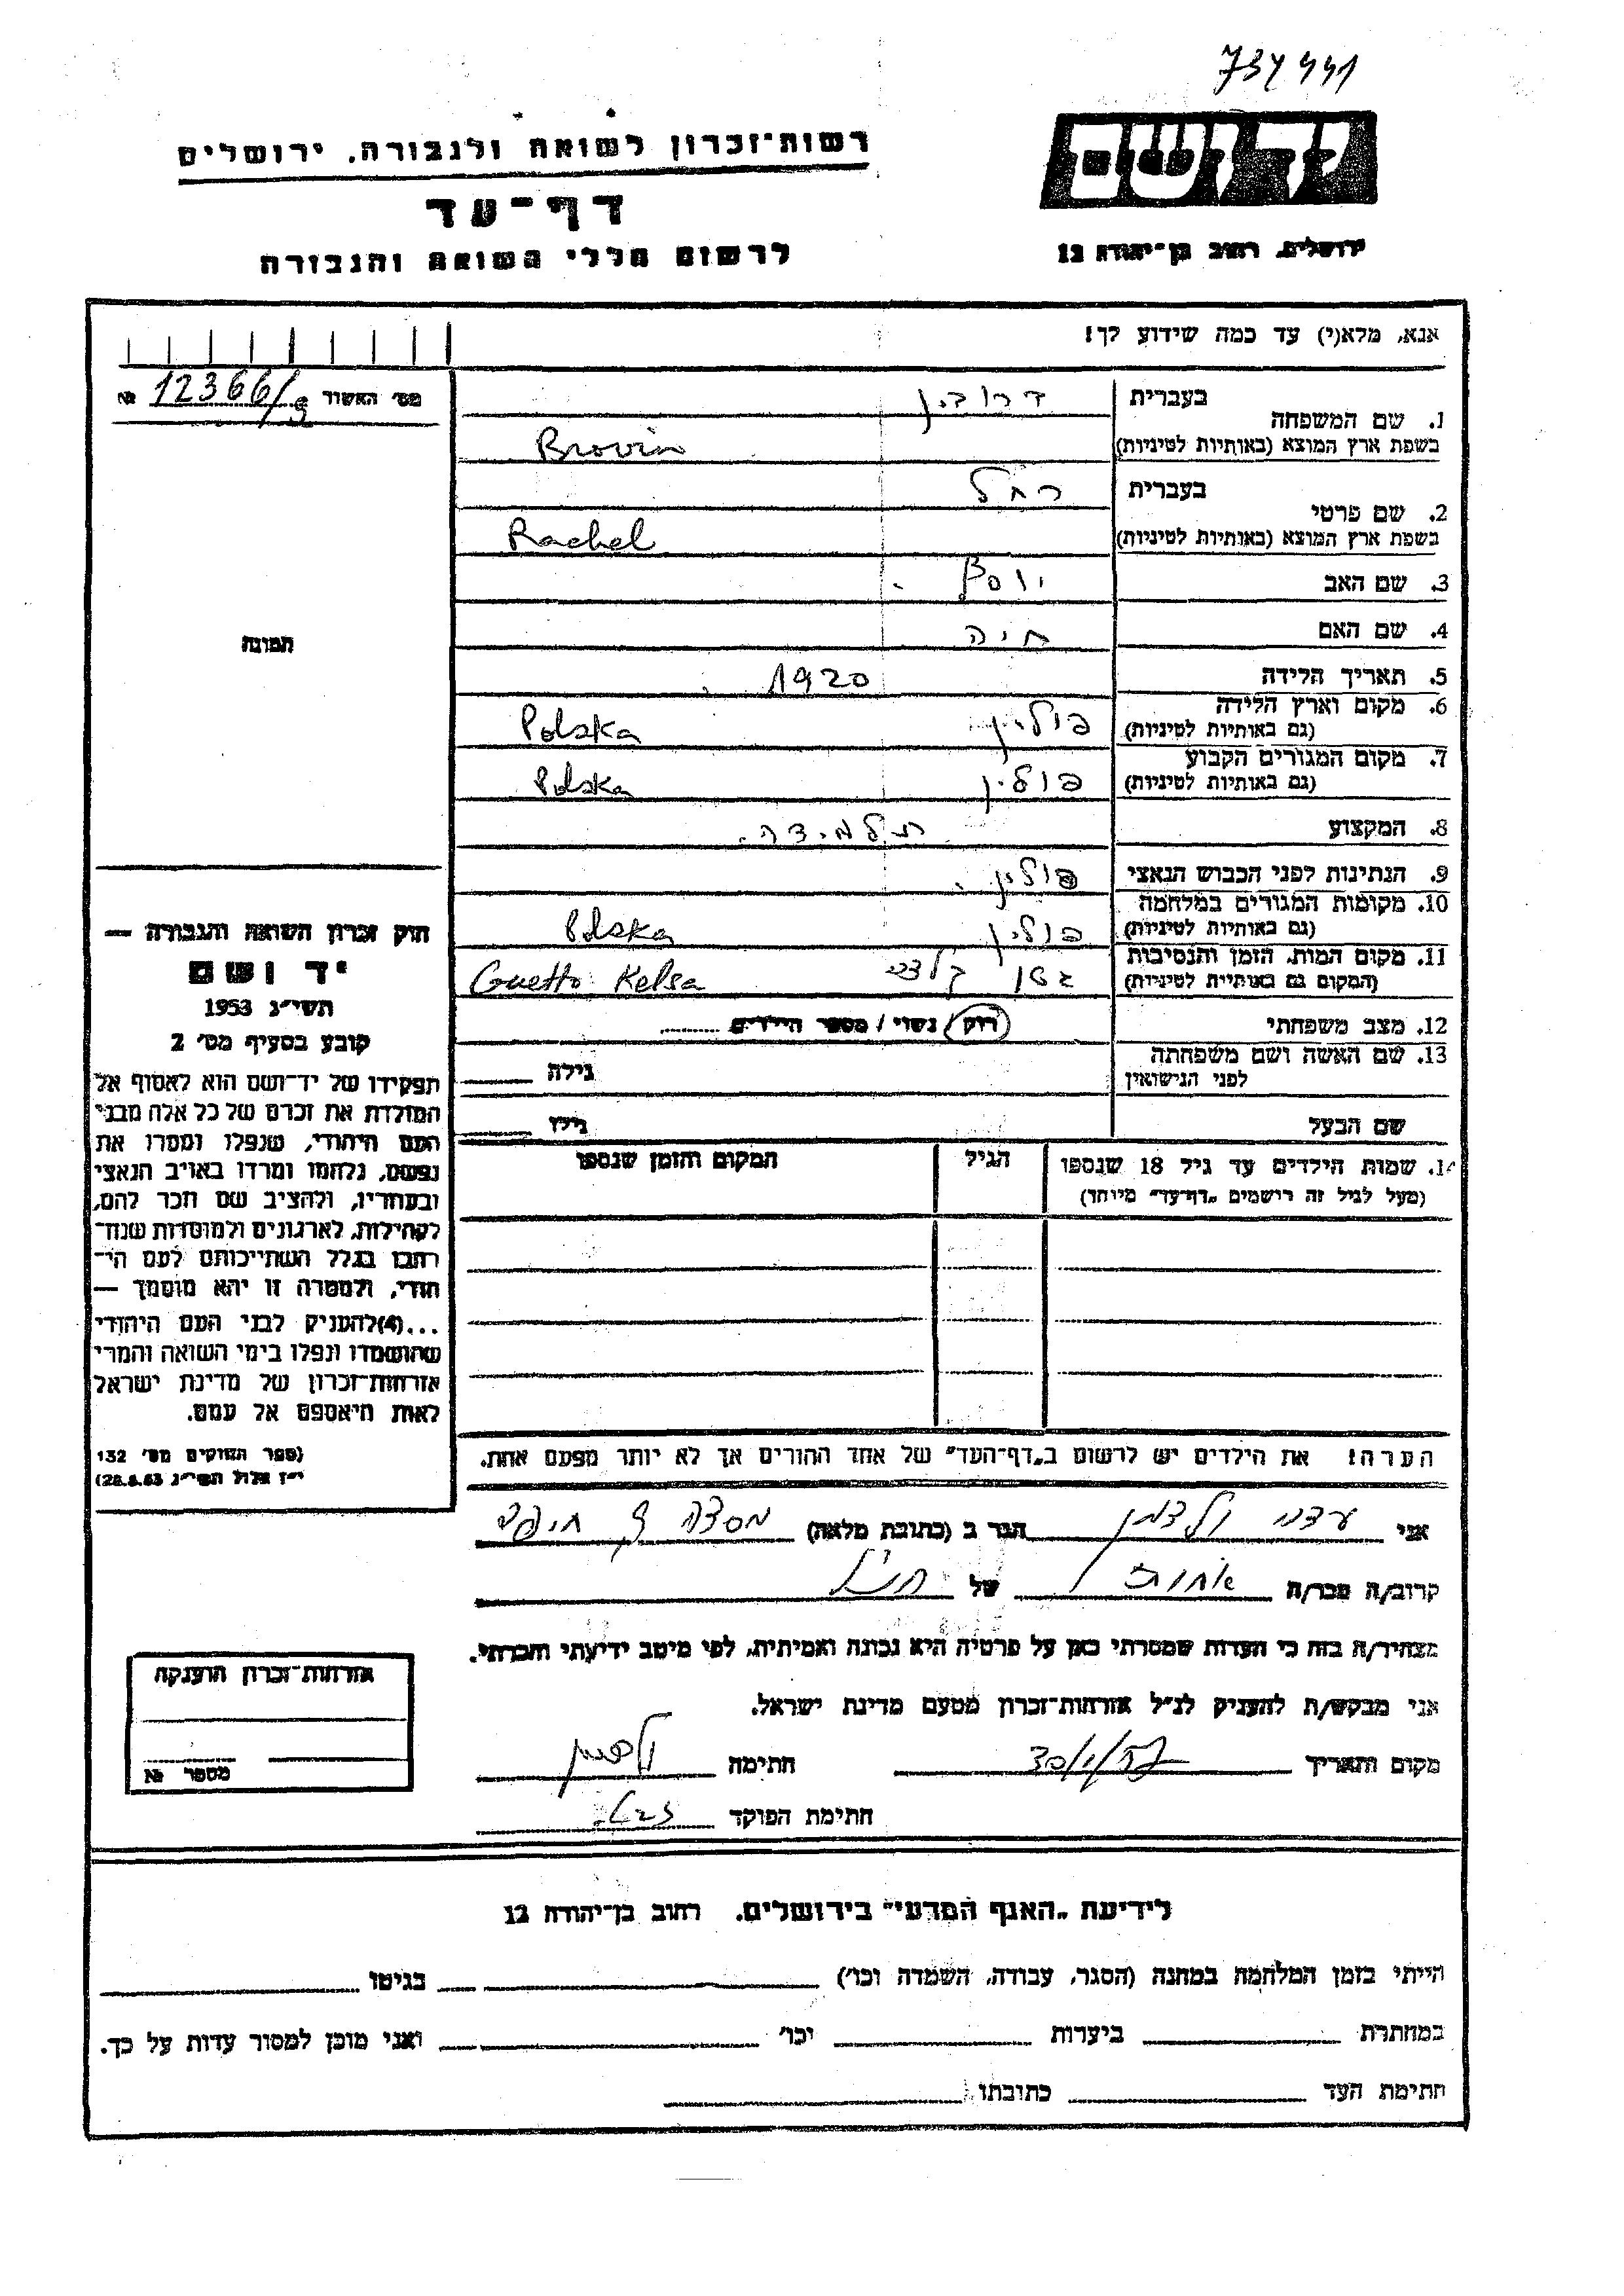 734441
יד ושם
ירושלים, רחוב בן־יהודה 12
רשות־זכרון לשואה ולגבורה, ירושלים
דף־עד
לרשום חללי השואה והגבורה
אנא, מלא(י) עד כמה שידוע לך!
מס׳ האשור 12366/9 №
1. שם המשפחה
בעברית
בשפת ארץ המוצא (באותיות לטיניות) Brovin
2. שם פרטי
בעברית רחל
בשפת ארץ המוצא (באותיות לטיניות) Rachel
3. שם האב יוסף
4. שם האם חיה
5. תאריך הלידה 1920
6. מקום וארץ הלידה (גם באותיות לטיניות) פולין Polska
7. מקום המגורים הקבוע (גם באותיות לטיניות) פולין Polska
8. המקצוע תלמידה
9. הנתינות לפני הכבוש הנאצי פולין
10. מקומות המגורים במלחמה (גם באותיות לטיניות) פולין Polska
11. מקום המות, הזמן והנסיבות (המקום גם באותיות לטיניות) גטו Guetto Kelsa
12. מצב משפחתי רווק / נשוי / מספר הילדים
13. שם האשה ושם משפחתה לפני הנישואין גילה
שם הבעל גילו
14. שמות הילדים עד גיל 18 שנספו
(מעל לגיל זה רושמים „דף־עד״ מיוחד)
הגיל
המקום והזמן שנספו
הערה! את הילדים יש לרשום ב„דף־העד״ של אחד ההורים אך לא יותר מפעם אחת.
תמונה
חוק זכרון השואה והגבורה —
יד ושם
תשי״ג 1953
קובע בסעיף מס׳ 2
תפקידו של יד־ושם הוא לאסוף אל
המולדת את זכרם של כל אלה מבני
העם היהודי, שנפלו ומסרו את
נפשם, נלחמו ומרדו באויב הנאצי
ובעוזריו, ולהציב שם וזכר להם,
לקהילות, לארגונים ולמוסדות שנח־
רבו בגלל השתייכותם לעם הי־
הודי, ולמטרה זו יהא מוסמך —
...(4)להעניק לבני העם היהודי
שהושמדו ונפלו בימי השואה והמרי
אזרחות־זכרון של מדינת ישראל
לאות היאספם אל עמם.
(ספר החוקים מס׳ 132
י״ז אלול תשי״ג 28.8.53)
אני הגר ב (כתובת מלאה) מסדה 9 חיפה
קרוב/ה מכר/ה אחות של הנ״ל
מצהיר/ה בזה כי העדות שמסרתי כאן על פרטיה היא נכונה ואמיתית, לפי מיטב ידיעתי והכרתי.
אני מבקש/ת להעניק לנ״ל אזרחות־זכרון מטעם מדינת ישראל.
מקום ותאריך חתימה
חתימת הפוקד
אזרחות־זכרון הוענקה
מספר №
לידיעת „האגף המדעי״ בירושלים, רחוב בן־יהודה 12
הייתי בזמן המלחמה במחנה (הסגר, עבודה, השמדה וכו׳) בגיטו
במחתרת ביערות וכו׳ ואני מוכן למסור עדות על כך.
חתימת העד כתובתו